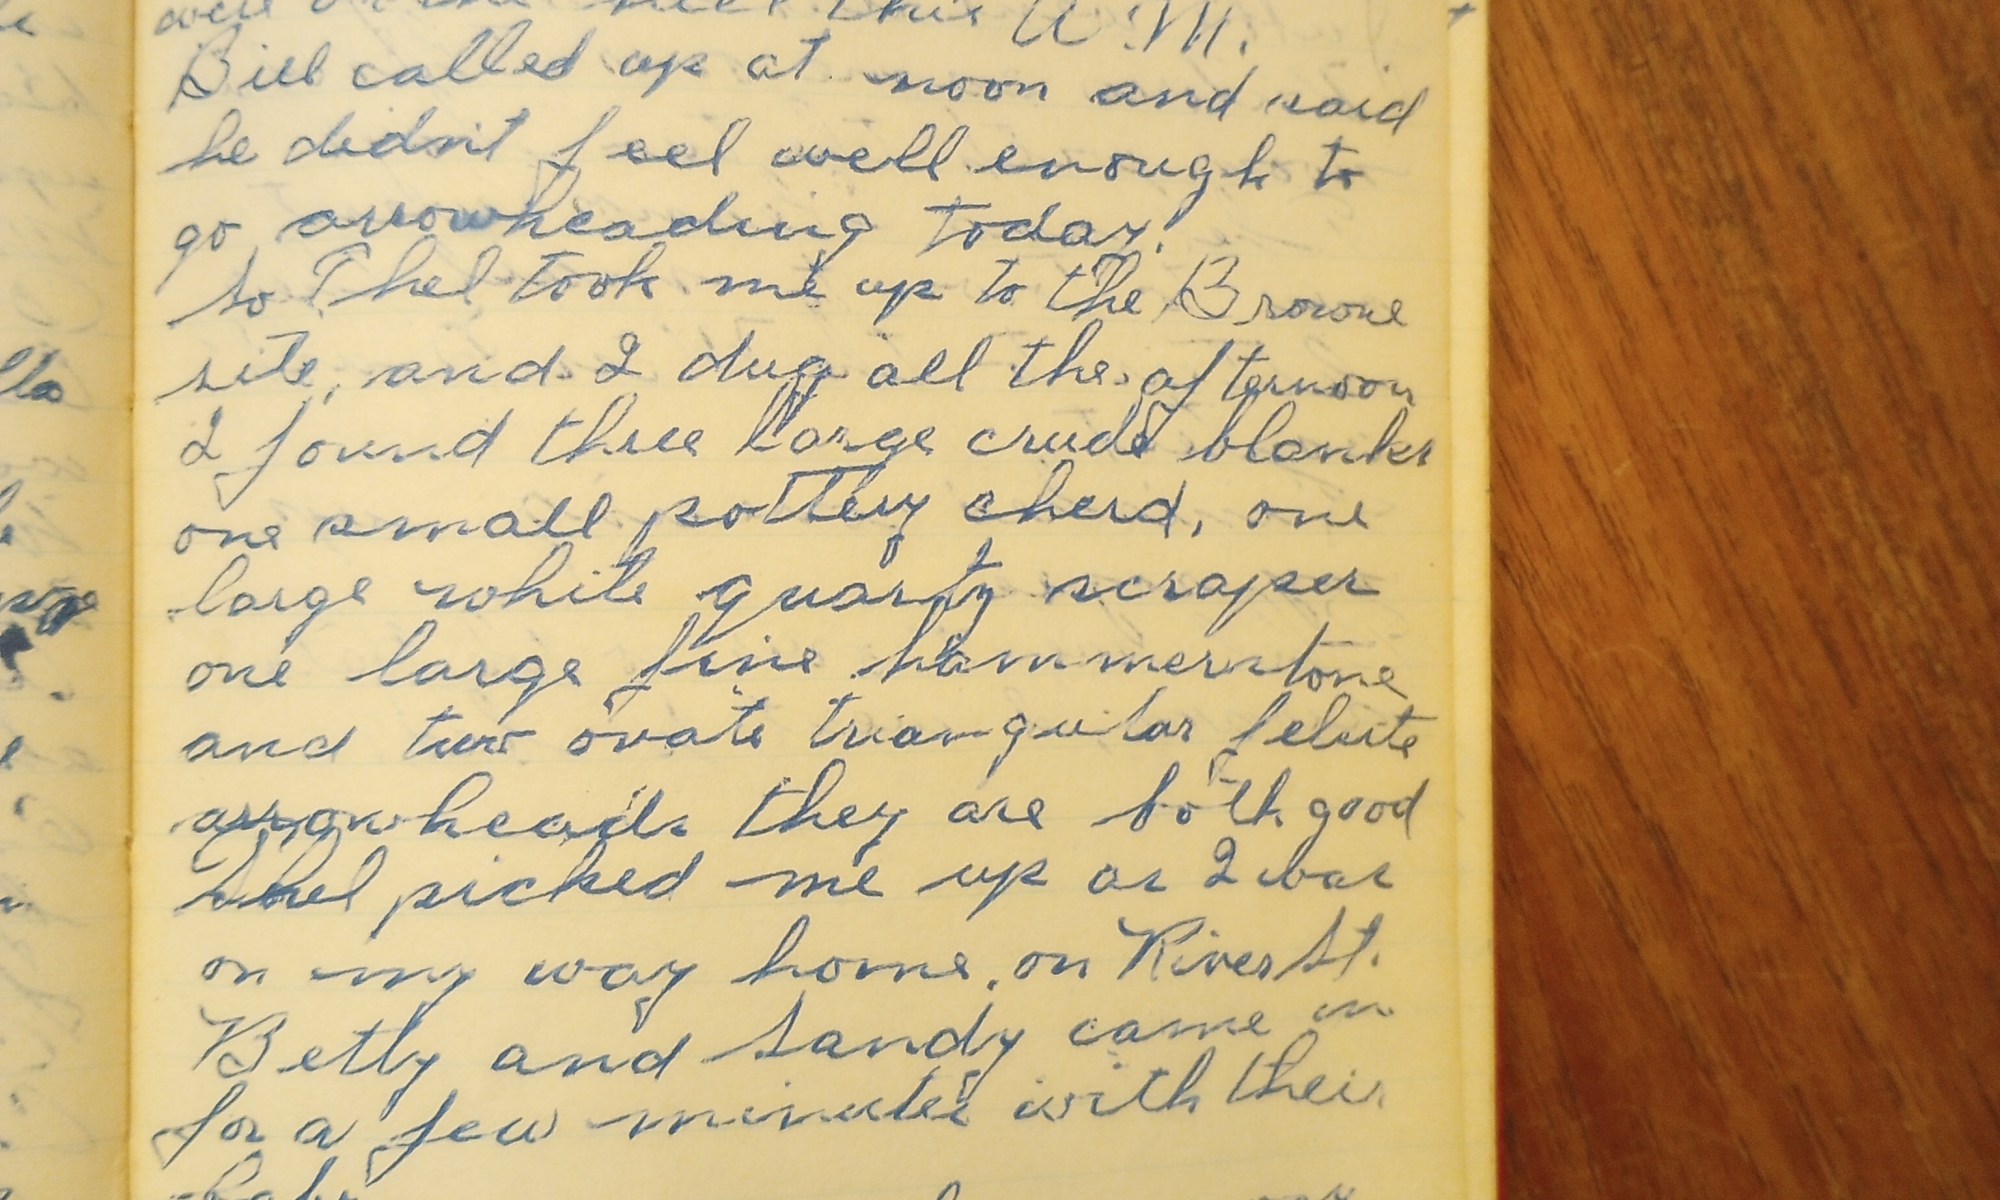 this A.M.
Bill called up at noon and said
he didn't feel well enough to
go arrowheading today.
So Thel took me up to the Browne
site, and I dug all the afternoon
I found three large crude blanks
one small pottery cherd, one
large white quartz scraper
one large fine hammerstone
and two ovate triangular felsite
arrowheads they are both good
Thel picked me up as I was
on my way home, on River St.
Betty and Sandy came in
for a few minutes with their